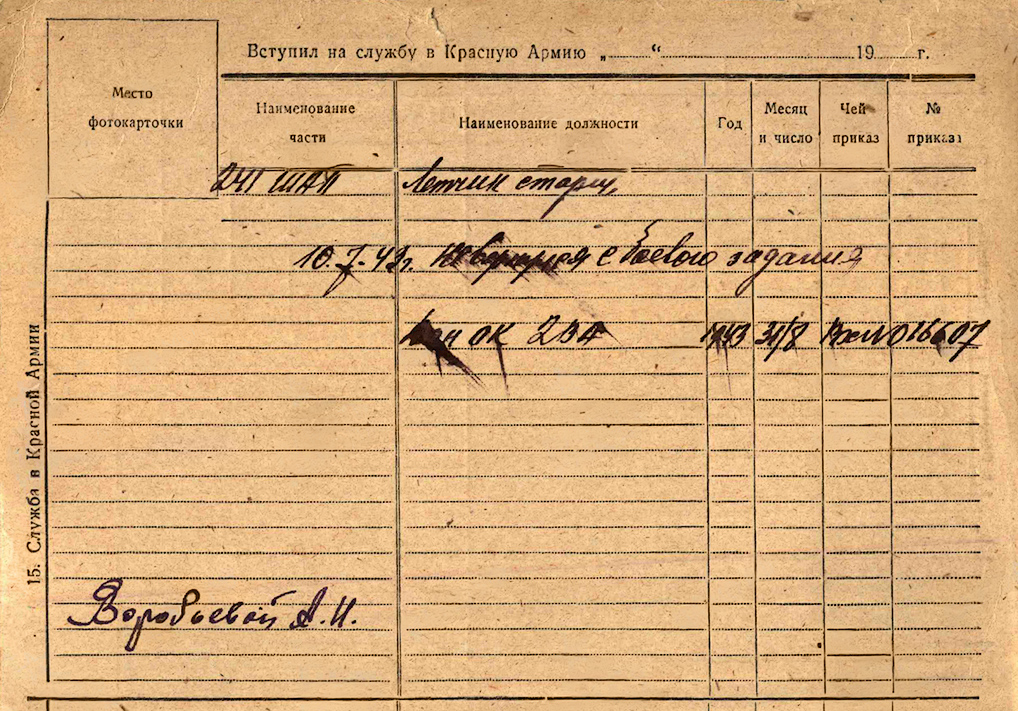 Вступил на службу в Красную Армию „........“ ........................ 19........г.
Место
фотокарточки
Наименование
части
Наименование должности
Год
Месяц
и число
Чей
приказ
№
приказа
241 ШАП Летчик старш.
10.7.43г. Не вернулся с боевого задания
ОК 2ВА 1943 31/8 Вх №016607
15. Служба в Красной Армии
Воробьевой А.И.